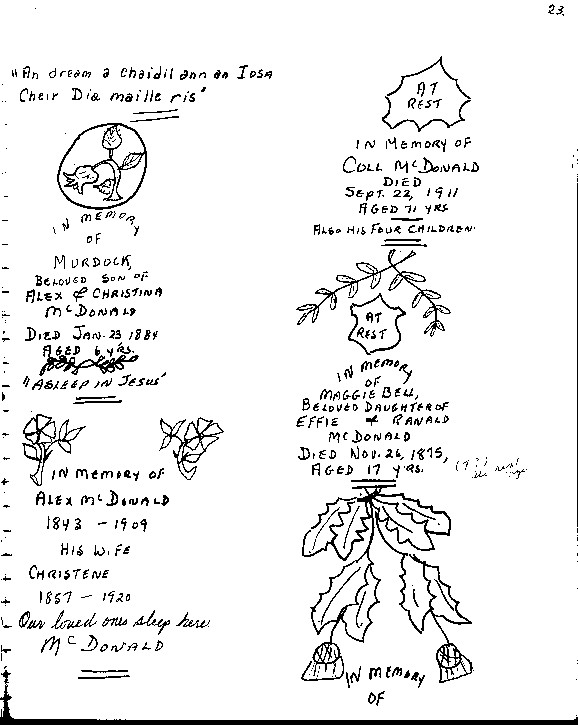 23.
"An dream a chaidil ann an Iosa
Cheir Dia maille ris"
IN MEMORY
OF
MURDOCK,
BELOVED SON OF
ALEX & CHRISTINA
McDONALD
DIED JAN. 23 1884
AGED 6 YRS.
"ASLEEP IN JESUS"
IN MEMORY OF
ALEX McDONALD
1843 - 1909
HIS WIFE
CHRISTENE
1857 - 1920
Our loved ones sleep here
McDONALD
AT
REST
IN MEMORY OF
COLL McDONALD
DIED
SEPT. 22, 1911
AGED 71 YRS
ALSO HIS FOUR CHILDREN.
AT
REST
IN MEMORY
OF
MAGGIE BELL,
BELOVED DAUGHTER OF
EFFIE & RANALD
McDONALD
DIED NOV. 26, 1875,
AGED 17 YRS.
IN MEMORY
OF